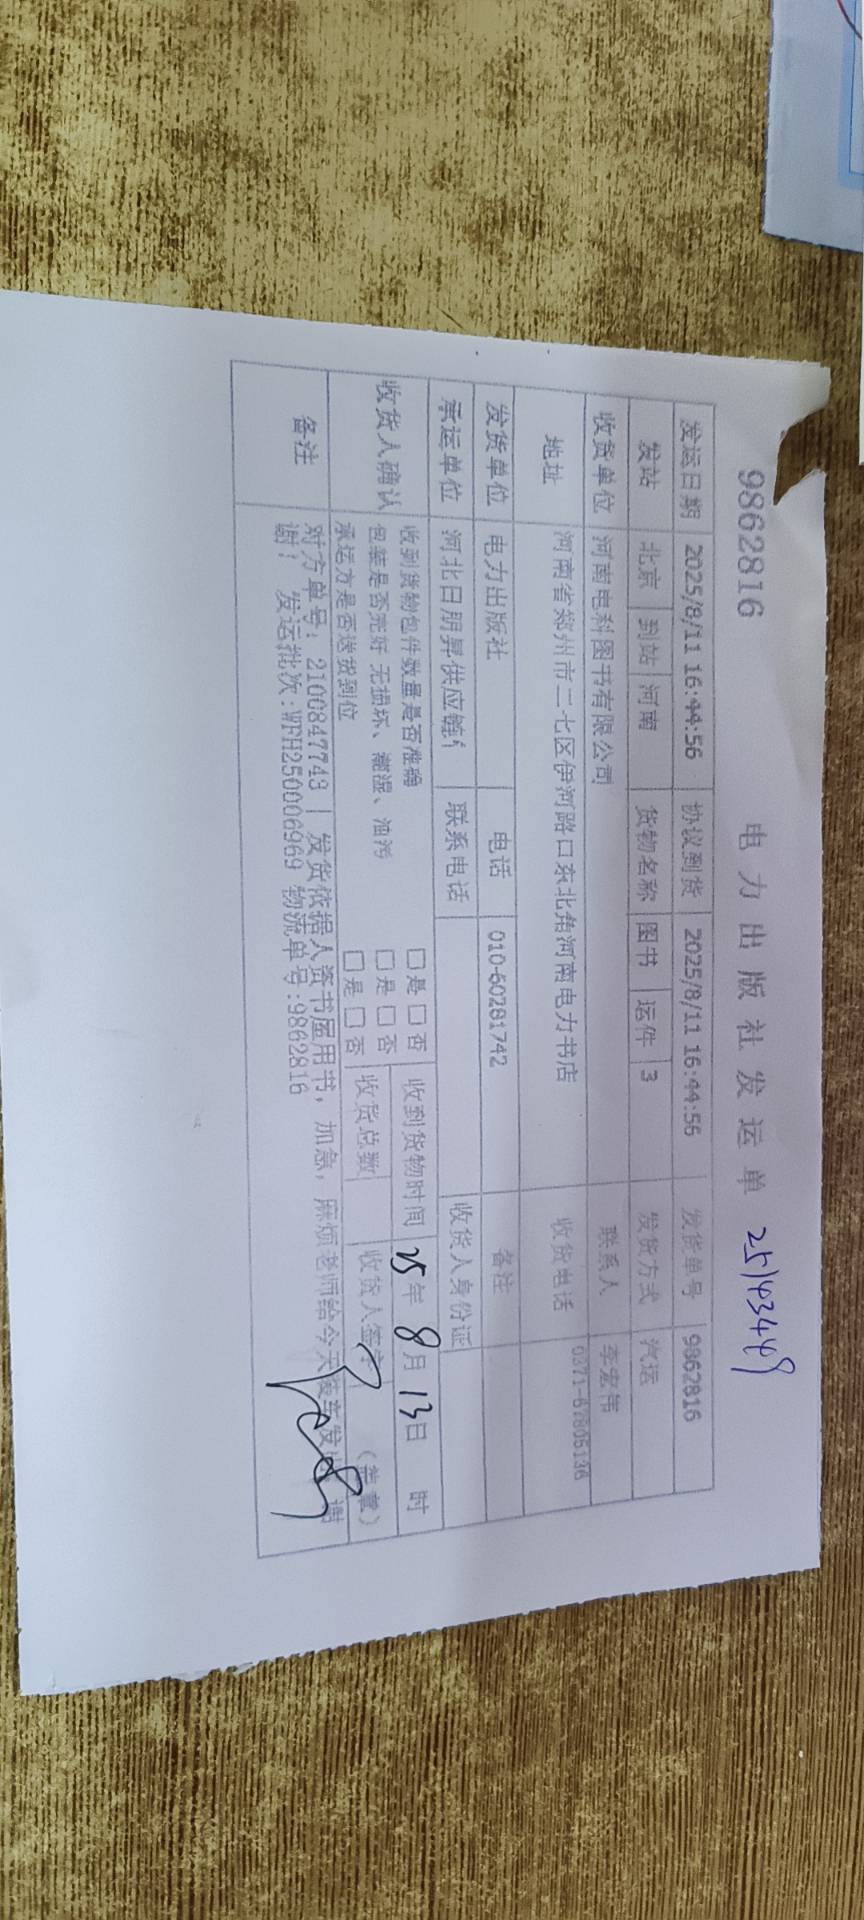 9862816 电力出版社发运单 25143449
发运日期 2025/8/11 16:44:56 协议到货 2025/8/11 16:44:56 发货单号 9862816
发站 北京 到站 河南 货物名称 图书 运件 3 发货方式 汽运
收货单位 河南电科图书有限公司 联系人 李宏伟
地址 河南省郑州市二七区伊河路口东北角河南电力书店 收货电话 0371-67905136
发货单位 电力出版社 电话 010-60281742 备注
承运单位 河北日朋昇供应链 联系电话 收货人身份证
收货人确认 收到货物包件数量是否准确 □是 □否 收到货物时间 25年 8月 13日 时
包装是否完好 无损坏、潮湿、油污 □是 □否
承运方是否送货到位 □是 □否 收货总数 收货人签字 (盖章)
备注 对方单号: 2100847743 | 发货依据人资书屋用书, 加急, 麻烦老师给今天装车发出 谢
谢! 发运批次:WFH250006969 物流单号:9862816